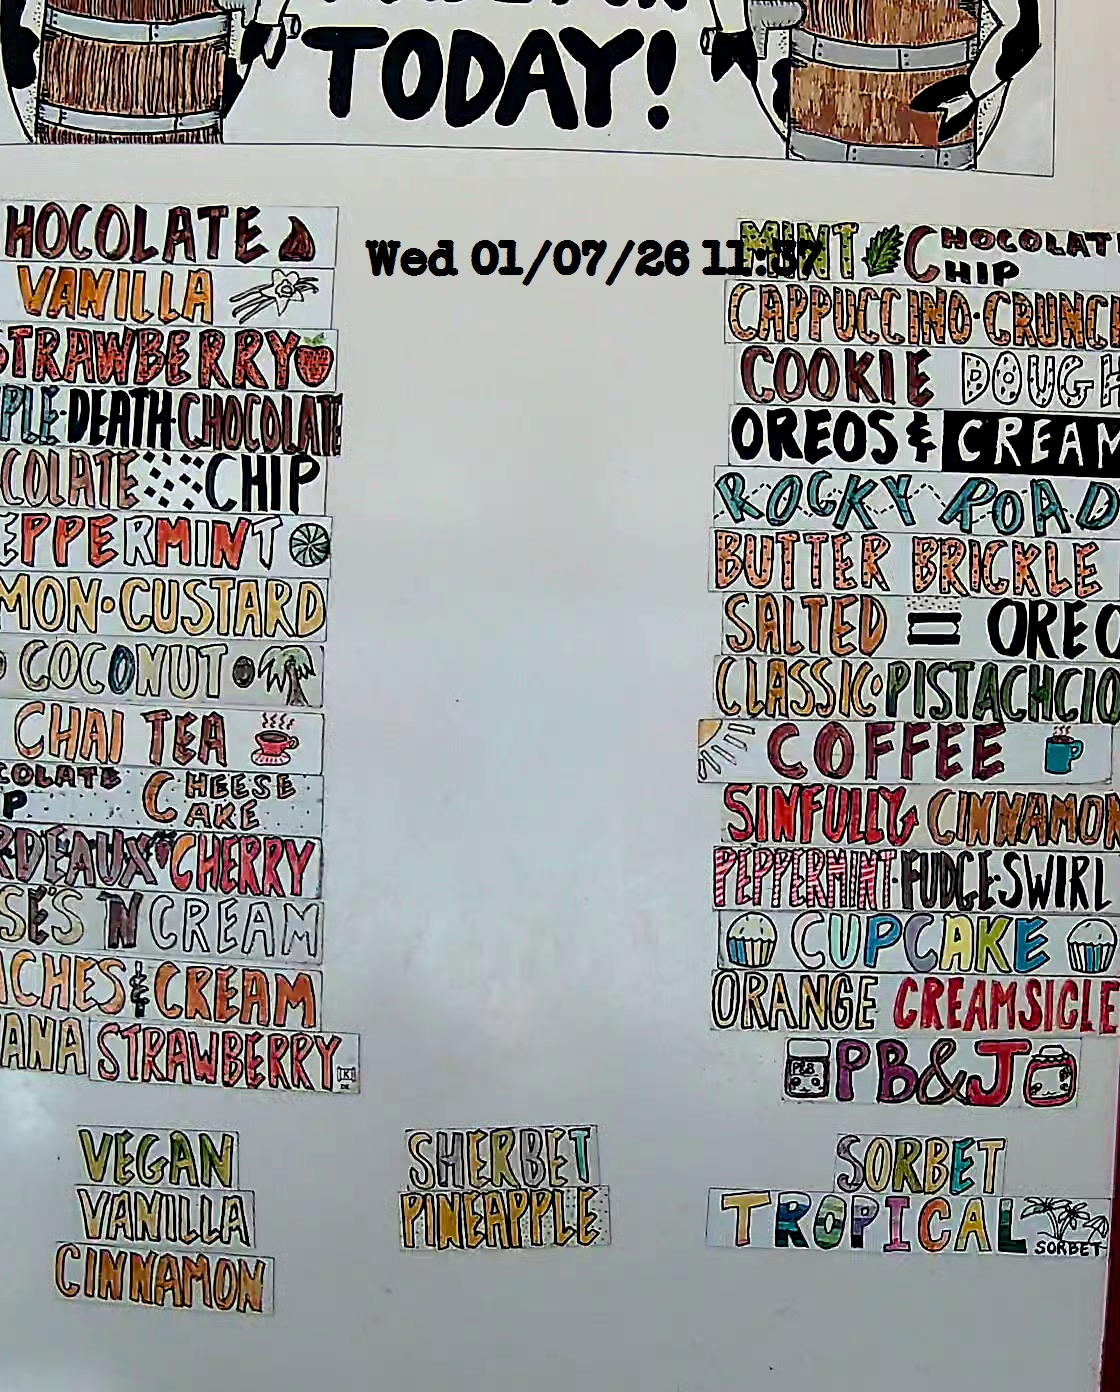 TODAY!
Wed 01/07/26 11:37
HOCOLATE
VANILLA
TRAWBERRY
PLE·DEATH·CHOCOLATE
COLATE CHIP
EPPERMINT
MON·CUSTARD
COCONUT
CHAI TEA
COLATE
P CHEESE CAKE
RDEAUX CHERRY
SE'S 'N CREAM
ACHES & CREAM
ANA STRAWBERRY
MINT CHOCOLAT
CHIP
CAPPUCCINO·CRUNC
COOKIE DOUGH
OREOS & CREAM
ROCKY ROAD
BUTTER BRICKLE
SALTED OREO
CLASSIC·PISTACHCIO
COFFEE
SINFULLY CINNAMON
PEPPERMINT·FUDGE·SWIRL
CUPCAKE
ORANGE CREAMSICLE
PB&J
VEGAN
VANILLA
CINNAMON
SHERBET
PINEAPPLE
SORBET
TROPICAL
SORBET